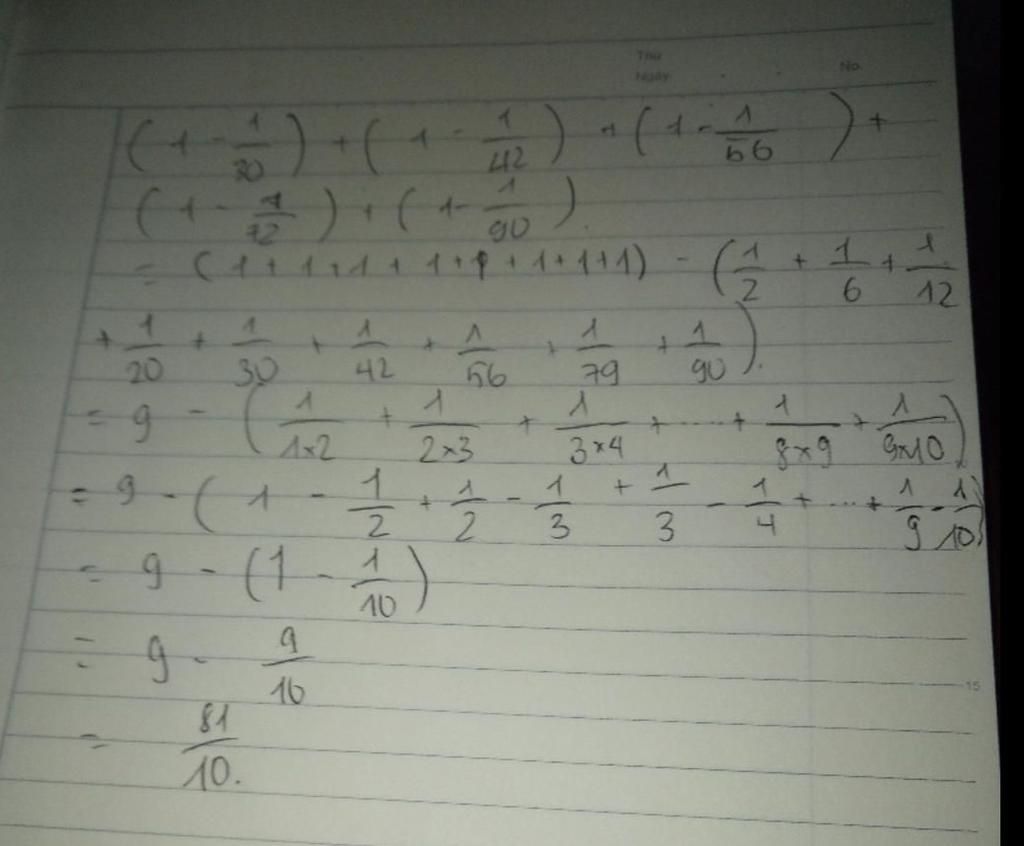 Thứ
Ngày
No.
(1 - 1/30) + (1 - 1/42) + (1 - 1/56) +
(1 - 1/72) + (1 - 1/90).
= (1+1+1+1+1+1+1+1) - (1/2 + 1/6 + 1/12
+ 1/20 + 1/30 + 1/42 + 1/56 + 1/79 + 1/90).
= 9 - (1/1×2 + 1/2×3 + 1/3×4 + ... + 1/8×9 + 1/9×10)
= 9 - (1 - 1/2 + 1/2 - 1/3 + 1/3 - 1/4 + ... + 1/9 - 1/10)
= 9 - (1 - 1/10)
= 9 - 9/10
15
= 81/10.